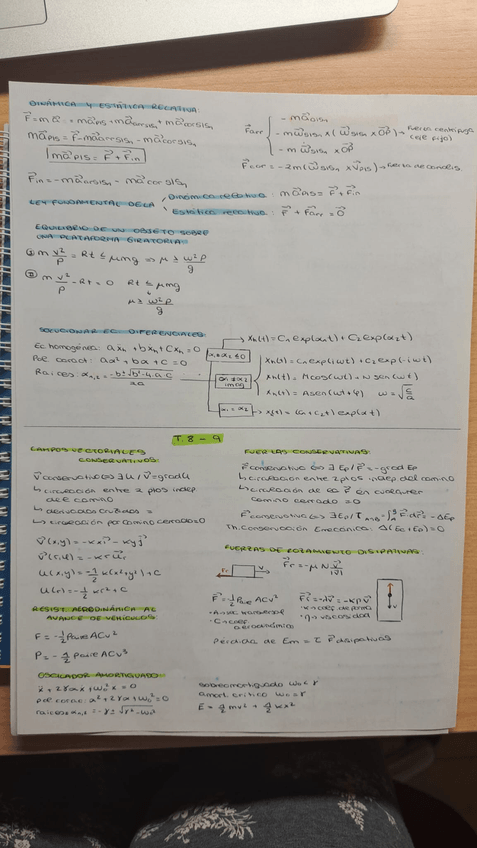 DINÁMICA Y ESTÁTICA RELATIVA
F⃗ = m a⃗ = m a⃗PIS1 + m a⃗arrSIS1 + m a⃗corSIS1
m a⃗PIS = F⃗ - m a⃗arrSIS1 - m a⃗corSIS1
m a⃗PIS = F⃗ + F⃗in
F⃗in = - m a⃗arrSIS1 - m a⃗corSIS1
F⃗arr { - m a⃗OISIS1
- m ω⃗SIS1 × (ω⃗SIS1 × O⃗P) → Fuerza centrífuga (eje fijo)
F⃗cor = -2m (ω⃗SIS1 × v⃗PIS) → Fuerza de coriolis
LEY FUNDAMENTAL DE LA
Dinámica relativa: m a⃗PIS = F⃗ + F⃗in
Estática relativa: F⃗ + F⃗arr = 0⃗
EQUILIBRIO DE UN OBJETO SOBRE
UNA PLATAFORMA GIRATORIA:
① m v²/ρ = Rt ≤ μmg ⇒ μ ≥ ω²ρ/g
② m v²/ρ - Rt = 0 Rt ≤ μmg
μ ≥ ω²ρ/g
SOLUCIONAR EC. DIFERENCIALES:
Ec homogénea: a ẍh + b ẋh + C xh = 0
Pol. caract: aα² + bα + C = 0
Raíces: α1,2 = (-b ± √(b² - 4·a·c))/2a
xh(t) = C1 exp(α1t) + C2 exp(α2t)
α1 ≠ α2
imag
xh(t) = C1 exp(iωt) + C2 exp(-iωt)
xh(t) = M cos(ωt) + N sen(ωt)
xh(t) = A sen(ωt + φ) ω = √(C/a)
α1 = α2
x(t) = (C1 + C2t) exp(αt)
T. 8 - 9
CAMPOS VECTORIALES
CONSERVATIVOS:
V⃗ conservativo ⇔ ∃ U / V⃗ = grad U
↳ circulación entre 2 ptos indep
del camino
↳ derivadas cruzadas =
↳ circulación por camino cerrado = 0
V⃗(x,y) = -kx i⃗ - ky j⃗
V⃗(r,θ) = -kr u⃗r
U(x,y) = -½ k(x²+y²) + C
U(r) = -½ kr² + C
RESIST. AERODINÁMICA AL
AVANCE DE VEHÍCULOS
F = -½ ρaire A C v²
P = -½ ρaire A C v³
OSCILADOR AMORTIGUADO
ẍ + 2γẋ + ω0² x = 0
pol carac: α² + 2γα + ω0² = 0
raíces α1,2 = -γ ± √(γ² - ω0²)
FUERZAS CONSERVATIVAS:
F⃗ conservativa ⇔ ∃ Ep / F⃗ = -grad Ep
↳ circulación entre 2 ptos indep del camino
↳ circulación de F⃗ en cualquier
camino cerrado = 0
F⃗ conservativa ⇔ ∃ Ep / τA→B = ∫ F⃗ dr⃗ = -ΔEp
Th. conservación Emecánica: Δ(Ec + Ep) = 0
FUERZAS DE ROZAMIENTO DISIPATIVAS:
Fr
v
F⃗r = -μ N v⃗/|v⃗|
F⃗ = ½ ρaire A C v²
· A área transversal
· C coef
aerodinámico
F⃗ = -λv⃗ = -kηv⃗
· η viscosidad
v
Pérdida de Em = τ F⃗ disipativas
sobreamortiguado ω0 < γ
amort. crítico ω0 = γ
E = ½ mv² + ½ kx²